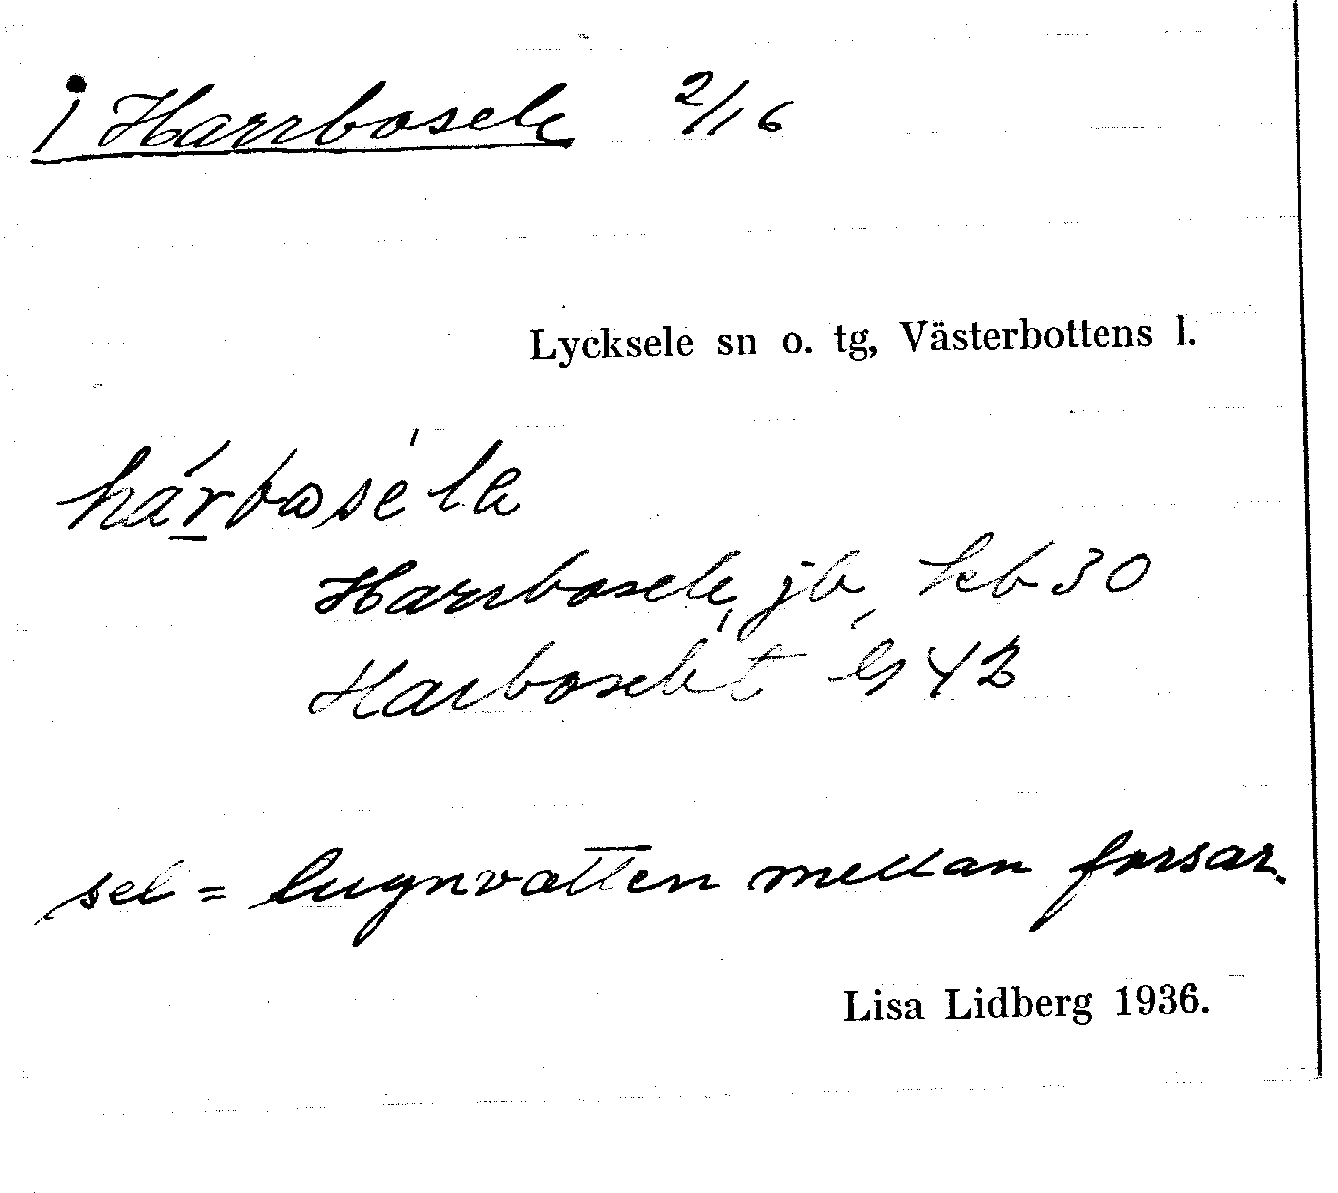 i Harrbosele 2/16
Lycksele sn o. tg, Västerbottens l.
hárbosela
Harrbosele, jb, kb 30
Harboselet 42
sel = lugnvatten mellan forsar.
Lisa Lidberg 1936.